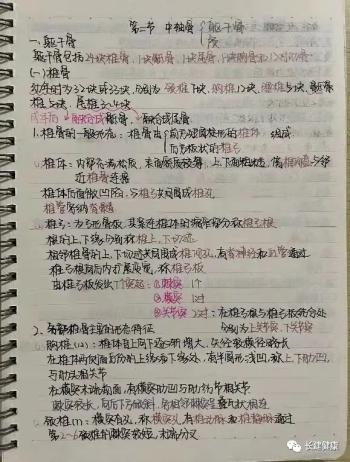 第二节 中轴骨 { 躯干骨
颅
一、躯干骨
躯干骨包括24块椎骨、1块骶骨、1块尾骨、1块胸骨和12对肋骨
(一)椎骨
幼年时为32块或33块,分为颈椎7块,胸椎12块,腰椎5块,骶
椎5块,尾椎3~4块
成年后 融合成骶骨, 融合成尾骨
1.椎骨的一般形态:椎骨由 { 前方短圆柱形的椎体 组成
后方板状的椎弓
椎体:内部为松质,表面 上下面粗糙,借椎间盘与邻
近椎骨连接
椎体后面微凹陷,与椎弓共同围成椎孔
椎管容纳脊髓
椎弓:为弓形骨板,其紧连椎体的缩窄部分称椎弓根
根的上、下缘分别称椎上、下切迹
相邻椎骨的上、下切迹共同围成椎间孔,有脊神经和血管通过
椎弓根向后内扩展变宽,称椎弓板
由椎弓板发出7个突起:①棘突 1个
②横突 1对
③关节突 2对:在椎弓根与椎弓板结合处
分别为上关节突、下关节突
2.各部椎骨主要的形态特征
胸椎(12):椎体自上向下逐渐增大,矢径较横径略长
在椎体两侧面后份的上缘和下缘处,有半圆形浅凹,称上、下肋凹,
与肋头相关节
在横突末端前面,有横突肋凹与肋结节相关节
棘突较长,向后下方倾斜,各相邻棘突呈叠瓦状相连
颈椎(7):横突有孔,称横突孔,有椎动脉和椎静脉通过
第2~6颈椎的棘突较短,末端分叉
长建健康